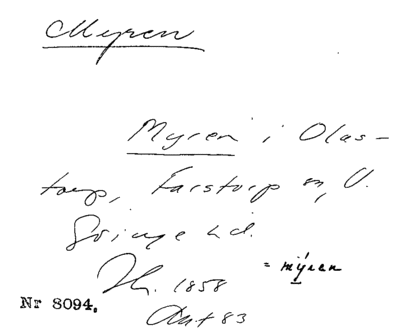 Myren
Myren i Olas-
torp, Farstorp sn, V.
Göinge hd.
= mýren
Th. 1858
Nr 8094.
Ant 83